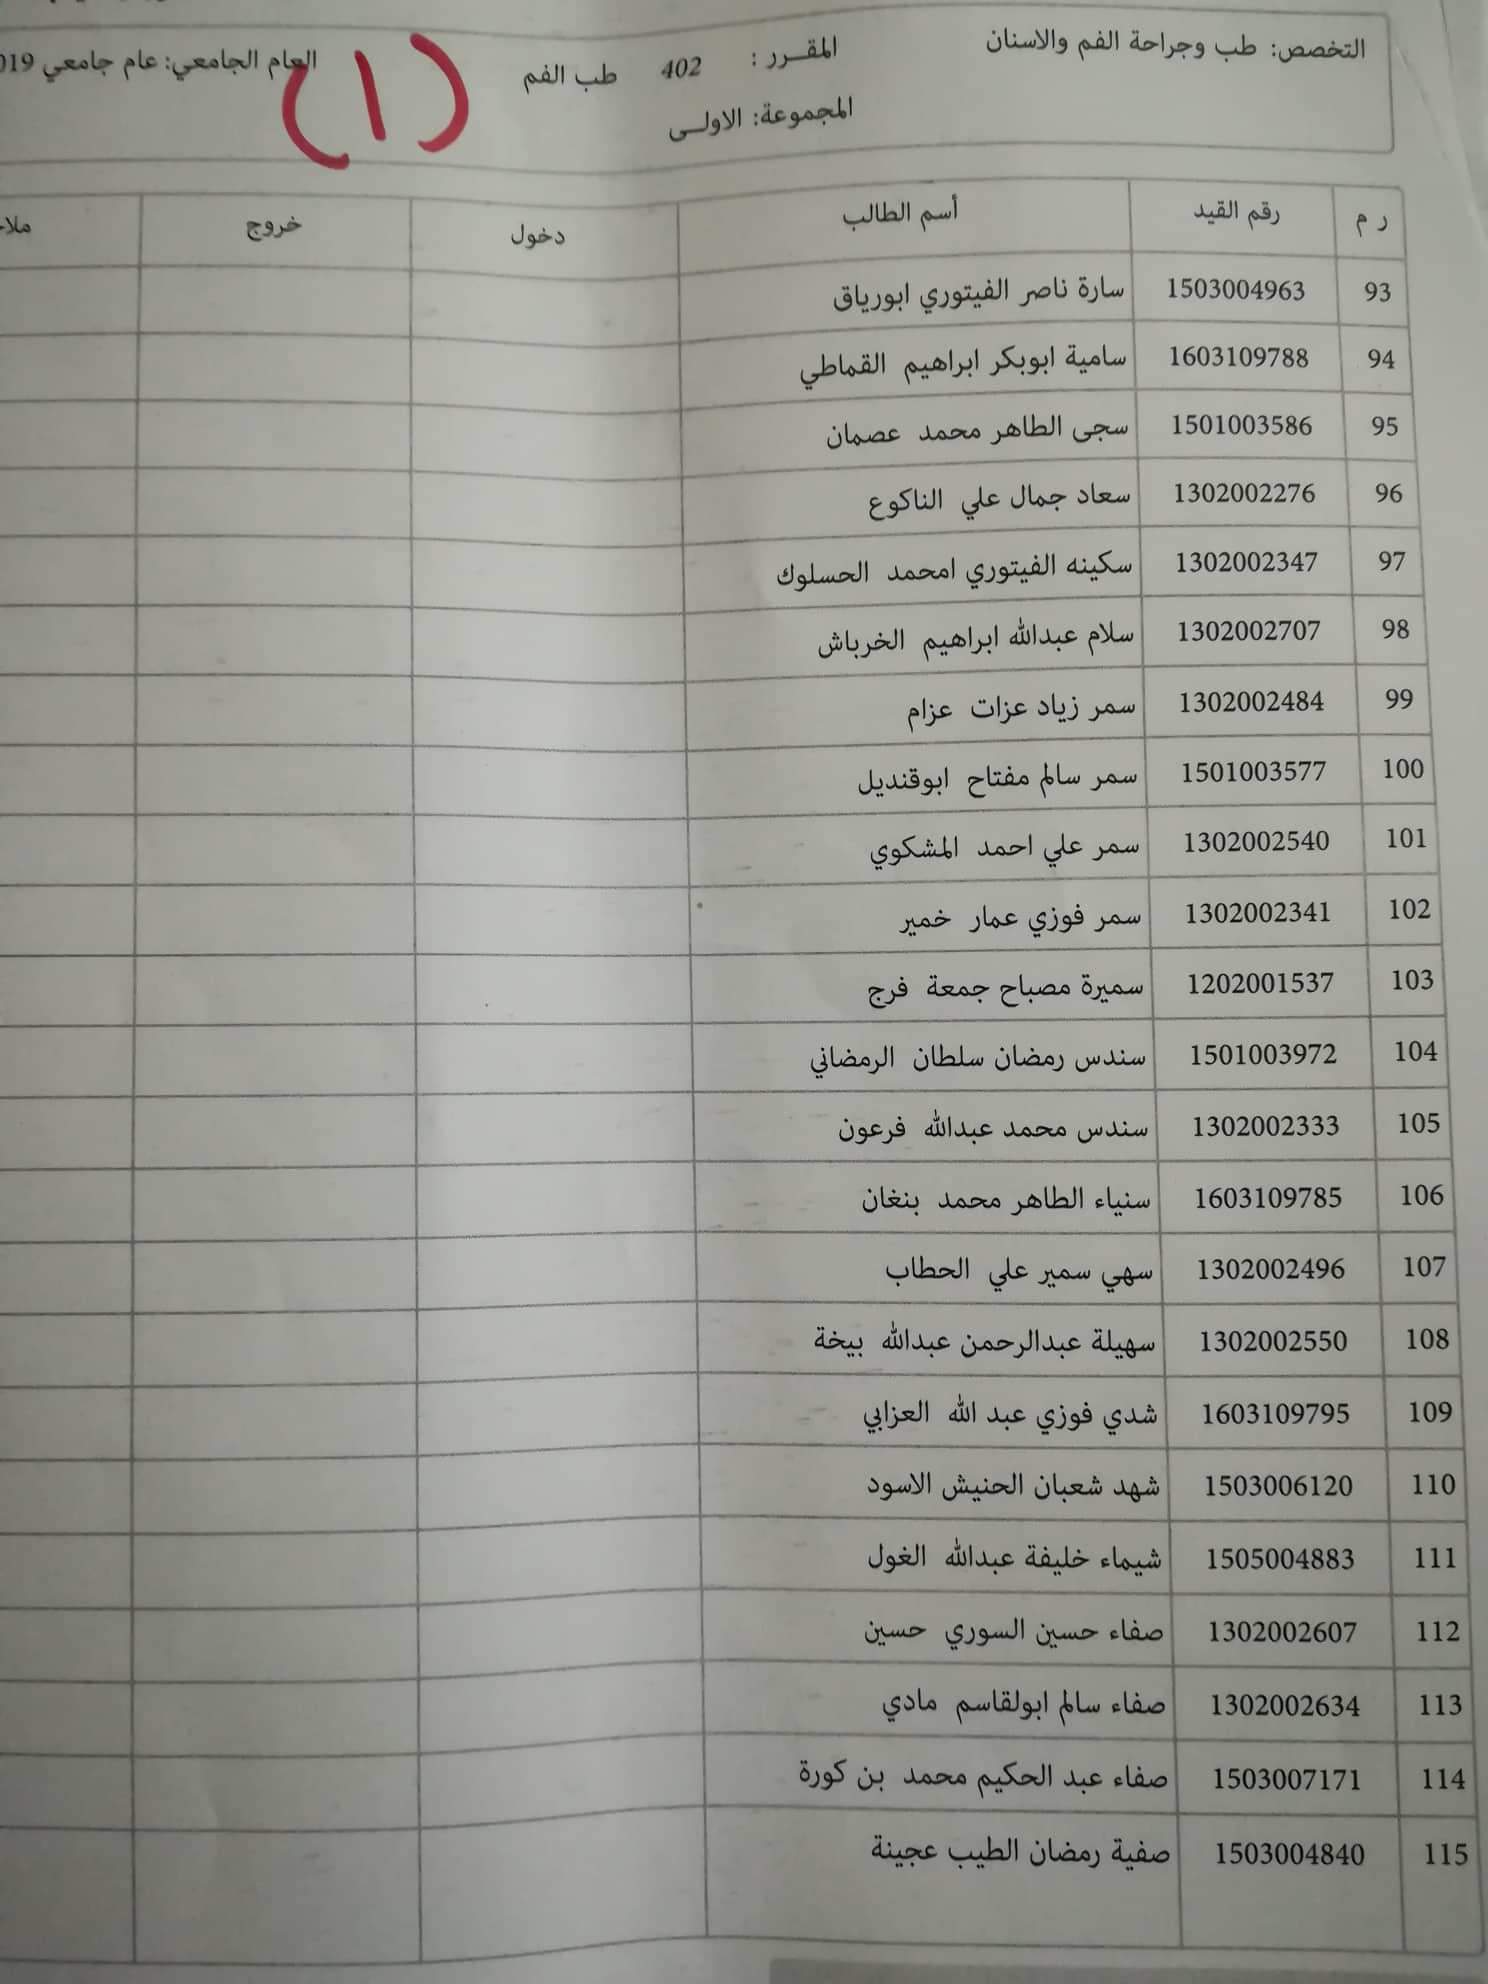 التخصص: طب وجراحة الفم والاسنان
المقـــرر : 402 طب الفم
العام الجامعي: عام جامعي 019
المجموعة: الاولــى
(1)
ر م رقم القيد أسم الطالب دخول خروج
93 1503004963 سارة ناصر الفيتوري ابورياق
94 1603109788 سامية ابوبكر ابراهيم القماطي
95 1501003586 سجى الطاهر محمد عصمان
96 1302002276 سعاد جمال علي الناكوع
97 1302002347 سكينه الفيتوري امحمد الحسلوك
98 1302002707 سلام عبدالله ابراهيم الخرباش
99 1302002484 سمر زياد عزات عزام
100 1501003577 سمر سالم مفتاح ابوقنديل
101 1302002540 سمر علي احمد المشكوي
102 1302002341 سمر فوزي عمار خمير
103 1202001537 سميرة مصباح جمعة فرج
104 1501003972 سندس رمضان سلطان الرمضاني
105 1302002333 سندس محمد عبدالله فرعون
106 1603109785 سنياء الطاهر محمد بنغان
107 1302002496 سهي سمير علي الحطاب
108 1302002550 سهيلة عبدالرحمن عبدالله بيخة
109 1603109795 شدي فوزي عبد الله العزابي
110 1503006120 شهد شعبان الحنيش الاسود
111 1505004883 شيماء خليفة عبدالله الغول
112 1302002607 صفاء حسين السوري حسين
113 1302002634 صفاء سالم ابولقاسم مادي
114 1503007171 صفاء عبد الحكيم محمد بن كورة
115 1503004840 صفية رمضان الطيب عجينة